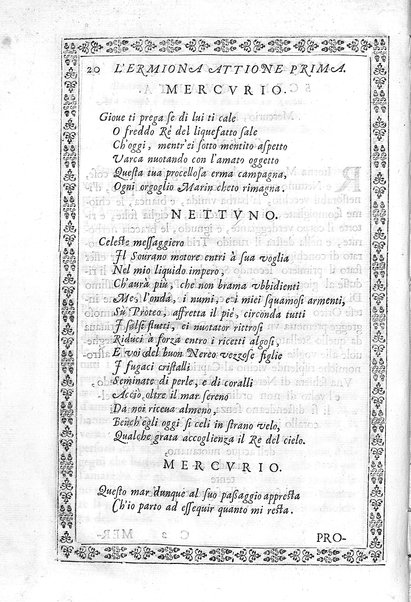 20 L'ERMIONA ATTIONE PRIMA.
MERCVRIO.
Gioue ti prega se di lui ti cale
O freddo Rè del liquefatto sale
Ch'oggi, mentr'ei sotto mentito aspetto
Varca nuotando con l'amato oggetto
Questa tua procellosa erma campagna,
Ogni orgoglio Marin cheto rimagna.
NETTVNO.
Celeste messaggiero
Il Sourano motore entri à sua voglia
Nel mio liquido impero,
Ch'aurà più, che non brama vbbidienti
Me, l'onda, i numi, e i miei squamosi armenti,
Sù Proteo, affretta il piè, circonda tutti
I salsi flutti, ei nuotator ritrosi
Riduci à forza entro i ricetti algosi,
E voi del buon Nereo vezzose figlie
I fugaci cristalli
Seminate di perle, e di coralli
Acciò, oltre il mar sereno
Da noi riceua almeno,
Bench'egli oggi si celi in strano velo,
Qualche grata accoglienza il Re del cielo.
MERCVRIO.
Questo mar dunque al suo passaggio appresta
Ch'io parto ad essequir quanto mi resta.
PRO-